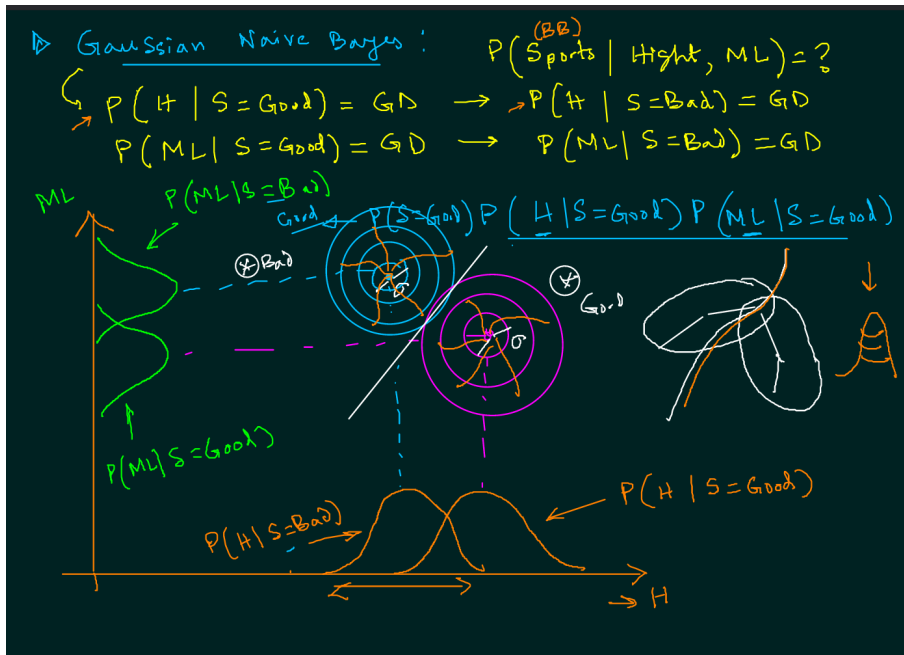 Gaussian Naive Bayes :
(BB)
P(Sports | Hight, ML) = ?
P(H | S=Good) = GD → P(H | S=Bad) = GD
P(ML | S=Good) = GD → P(ML | S=Bad) = GD
ML
P(ML | S=Bad)
Good ← P(S=Good) P(H | S=Good) P(ML | S=Good)
Bad
σ
Good
σ
P(ML | S=Good)
P(H | S=Good)
P(H | S=Bad)
→ H